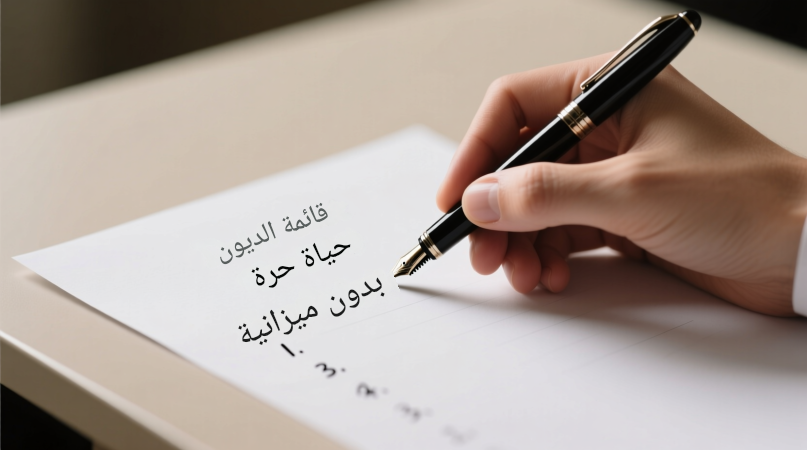 قائمة الديون
حياة حرة
بدون ميزانية
1.
3.